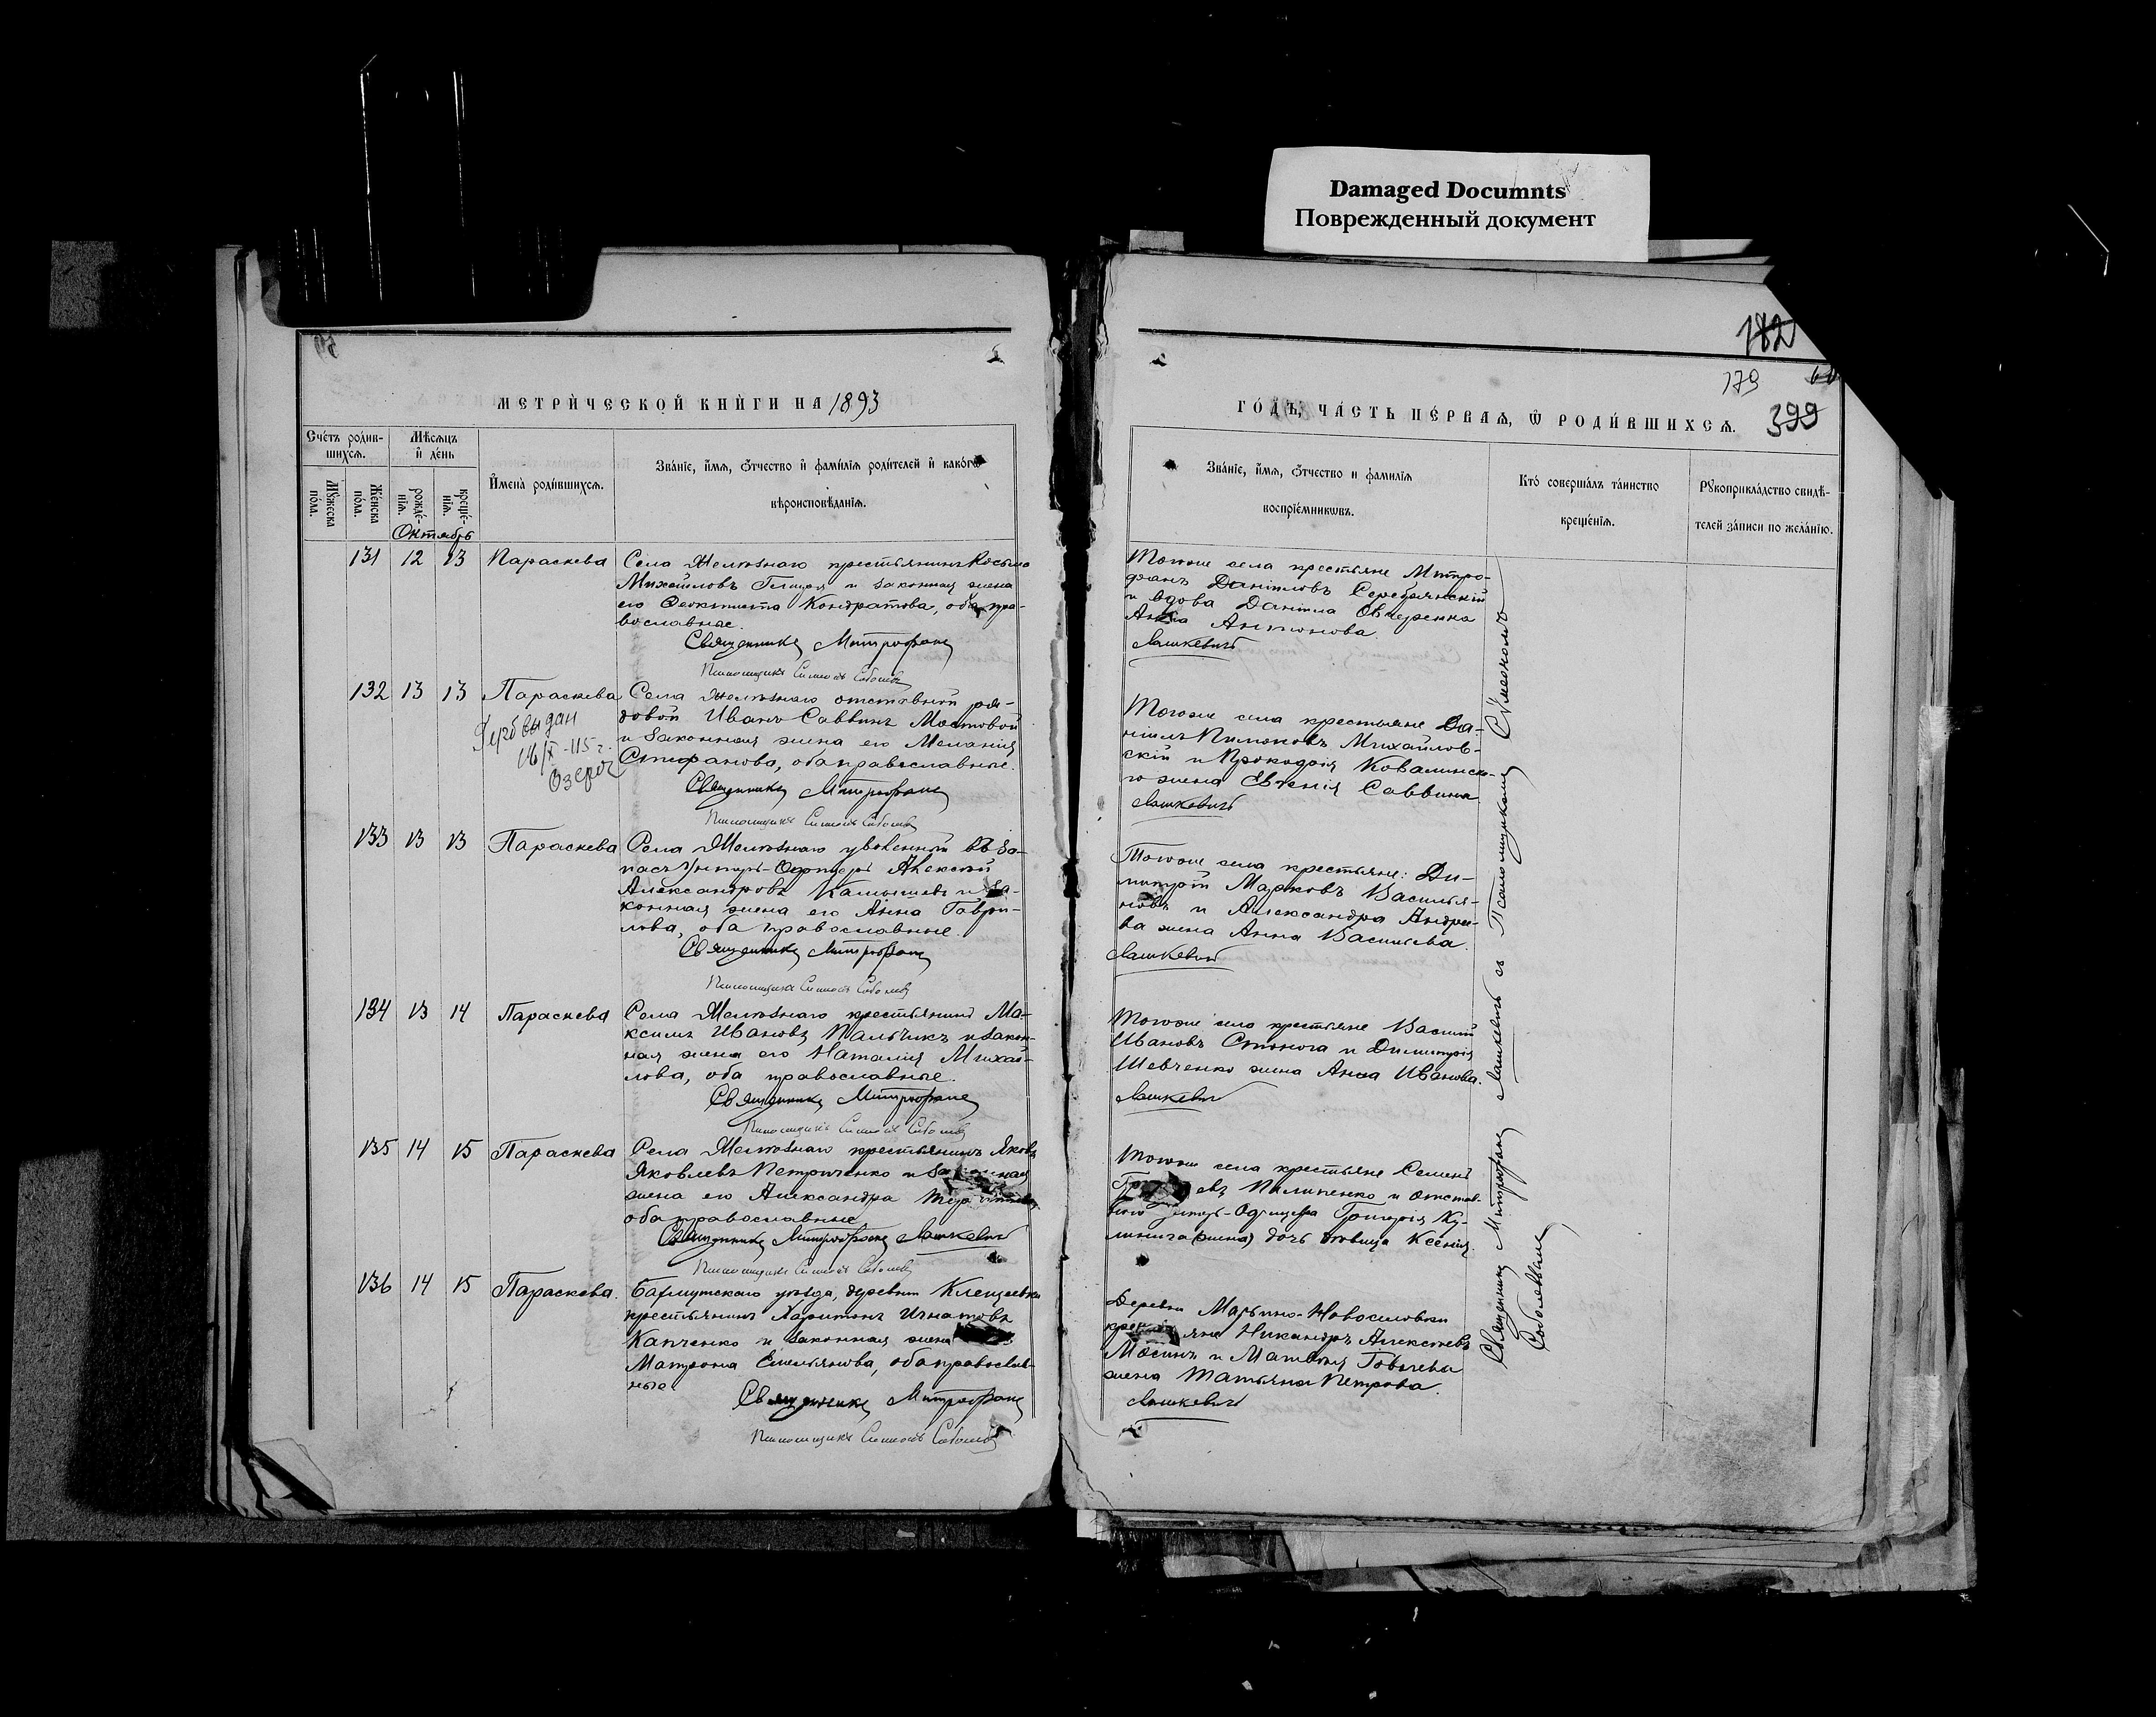 Damaged Documnts
Поврежденный документ
182
179
399
МЕТРИ́ЧЕСКОЙ КНИ́ГИ НА 1893
ГО́ДЪ, ЧА́СТЬ ПЕ́РВАѦ, Ѡ҆ РОДИ́ВШИХСѦ.
Сче́тъ роди́в-
шихсѧ.
Мѣ́сѧцъ
и҆ де́нь
И҆мена̀ роди́вшихсѧ.
Зва́нїе, и҆́мѧ, ѻ҆́тчество и҆ фами́лїѧ роди́телей и҆ како́гѡ
вѣроисповѣ́данїѧ.
Мꙋ́жеска
по́ла.
Же́нска
по́ла.
рожде́-
нїѧ.
креще́-
нїѧ.
Октябрь
Зва́нїе, и҆́мѧ, ѻ҆́тчество и фами́лїѧ
воспрїе́мникѡвъ.
Кто̀ соверша́лъ та́инство
креще́нїѧ.
Рꙋкоприкла́дство свидѣ́-
телей за́писи по жела́нїю.
131 12 13 Параскева Села Желѣзнаго крестьянинъ Косьма
Михайловъ и законная жена
его Феоктиста Кондратова, оба пра-
вославные.
Священникъ Митрофанъ
Псаломщикъ Симеонъ Соболевъ
Тогоже села крестьяне Митро-
фанъ Даніиловъ Серебрянскій
и вдова Даніила Овчеренка
Анна Антонова.
Лашкевичъ
132 13 13 Параскева Села Желѣзнаго отставной ря-
довой Иванъ Саввинъ Мостовой
и законная жена его Меланія
Стефанова, оба православные.
выдан
16/X-115 г.
Священникъ Митрофанъ
Псаломщикъ Симеонъ Соболевъ
Тогоже села крестьяне Да-
ніилъ Пимоновъ Михайлов-
скій и Прокофія Ковалинска-
го жена Евгенія Саввина.
Лашкевичъ
133 13 13 Параскева Села Желѣзнаго уволенный въ за-
пасъ Унтеръ-Офицеръ Алексѣй
Александровъ Камышевъ и за-
конная жена его Анна Гаври-
лова, оба православные.
Священникъ Митрофанъ
Псаломщикъ Симеонъ Соболевъ
Тогоже села крестьяне: Ди-
митрій Марковъ Василья-
новъ и Александра Андрее-
ва жена Анна Васильева.
Лашкевичъ
134 13 14 Параскева Села Желѣзнаго крестьянинъ Ма-
ксимъ Ивановъ Пальчикъ и закон-
ная жена его Наталія Михай-
лова, оба православные.
Священникъ Митрофанъ
Псаломщикъ Симеонъ Соболевъ
Тогоже села крестьяне Василій
Ивановъ Стонога и Димитрія
Шевченко жена Анна Иванова.
Лашкевичъ
135 14 15 Параскева Села Желѣзнаго крестьянинъ Яковъ
Яковлевъ Петриченко и законная
жена его Александра
оба православные
Священникъ Митрофанъ Лашкевичъ
Псаломщикъ Симеонъ Соболевъ
Тогоже села крестьяне Семенъ
Пилипенко и отстав-
ного Унтеръ-Офицера Григорія Ку-
линича (жена) дочь дѣвица Ксенія.
136 14 15 Параскева. Бахмутскаго уѣзда, деревни Клещеевки
крестьянинъ Харитонъ Игнатовъ
Капченко и законная жена
Матрона Емельянова, оба православ-
ные.
Священникъ Митрофанъ
Псаломщикъ Симеонъ Соболевъ
Деревни Марьино-Новоселовки
крестьяне Никандръ Алексѣевъ
Мосинъ и Матвѣя
жена Татьяна Петрова.
Лашкевичъ
Священникъ Митрофанъ Лашкевичъ съ Псаломщикомъ Сѵмеономъ
Соболевымъ